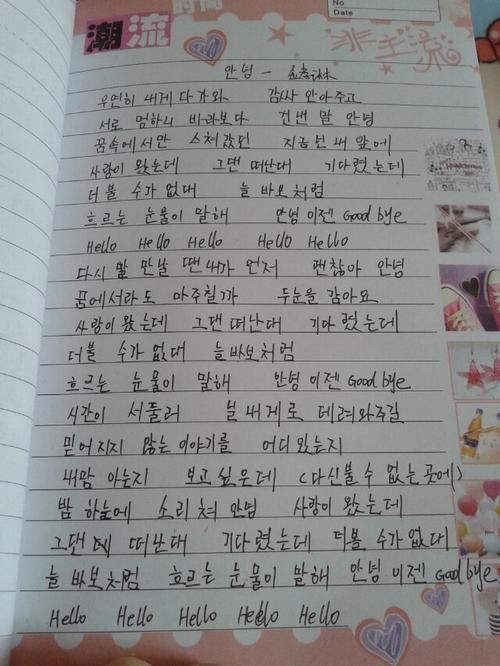 时尚
No
Date
潮流
非主流
안녕 - 孟彦琳
우연히 내게 다가와 감싸 안아주고
서로 멍하니 바라보다 건낸 말 안녕
꿈속에서만 스쳐갔던 지금 넌 내 앞에
사랑이 왔는데 그댄 떠난대 기다렸는데
더 볼 수가 없대 늘 바보처럼
흐르는 눈물이 말해 안녕 이젠 Good bye
Hello Hello Hello Hello Hello
다시 만날 땐 내가 먼저 괜찮아 안녕
꿈에서라도 마주칠까 두눈을 감아요
사랑이 왔는데 그댄 떠난대 기다렸는데
더볼 수가 없대 늘바보처럼
흐르는 눈물이 말해 안녕 이젠 Good bye
시간이 서둘러 널 내게로 데려와주길
믿어지지 않는 이야기를 어디 있는지
내맘 아는지 보고 싶은데 (다신볼 수 없는 곳에)
밤 하늘에 소리쳐 안녕 사랑이 왔는데
그댄 떠난대 기다렸는데 더볼 수가 없대
늘 바보처럼 흐르는 눈물이 말해 안녕 이젠 Good bye
Hello Hello Hello Hello Hello